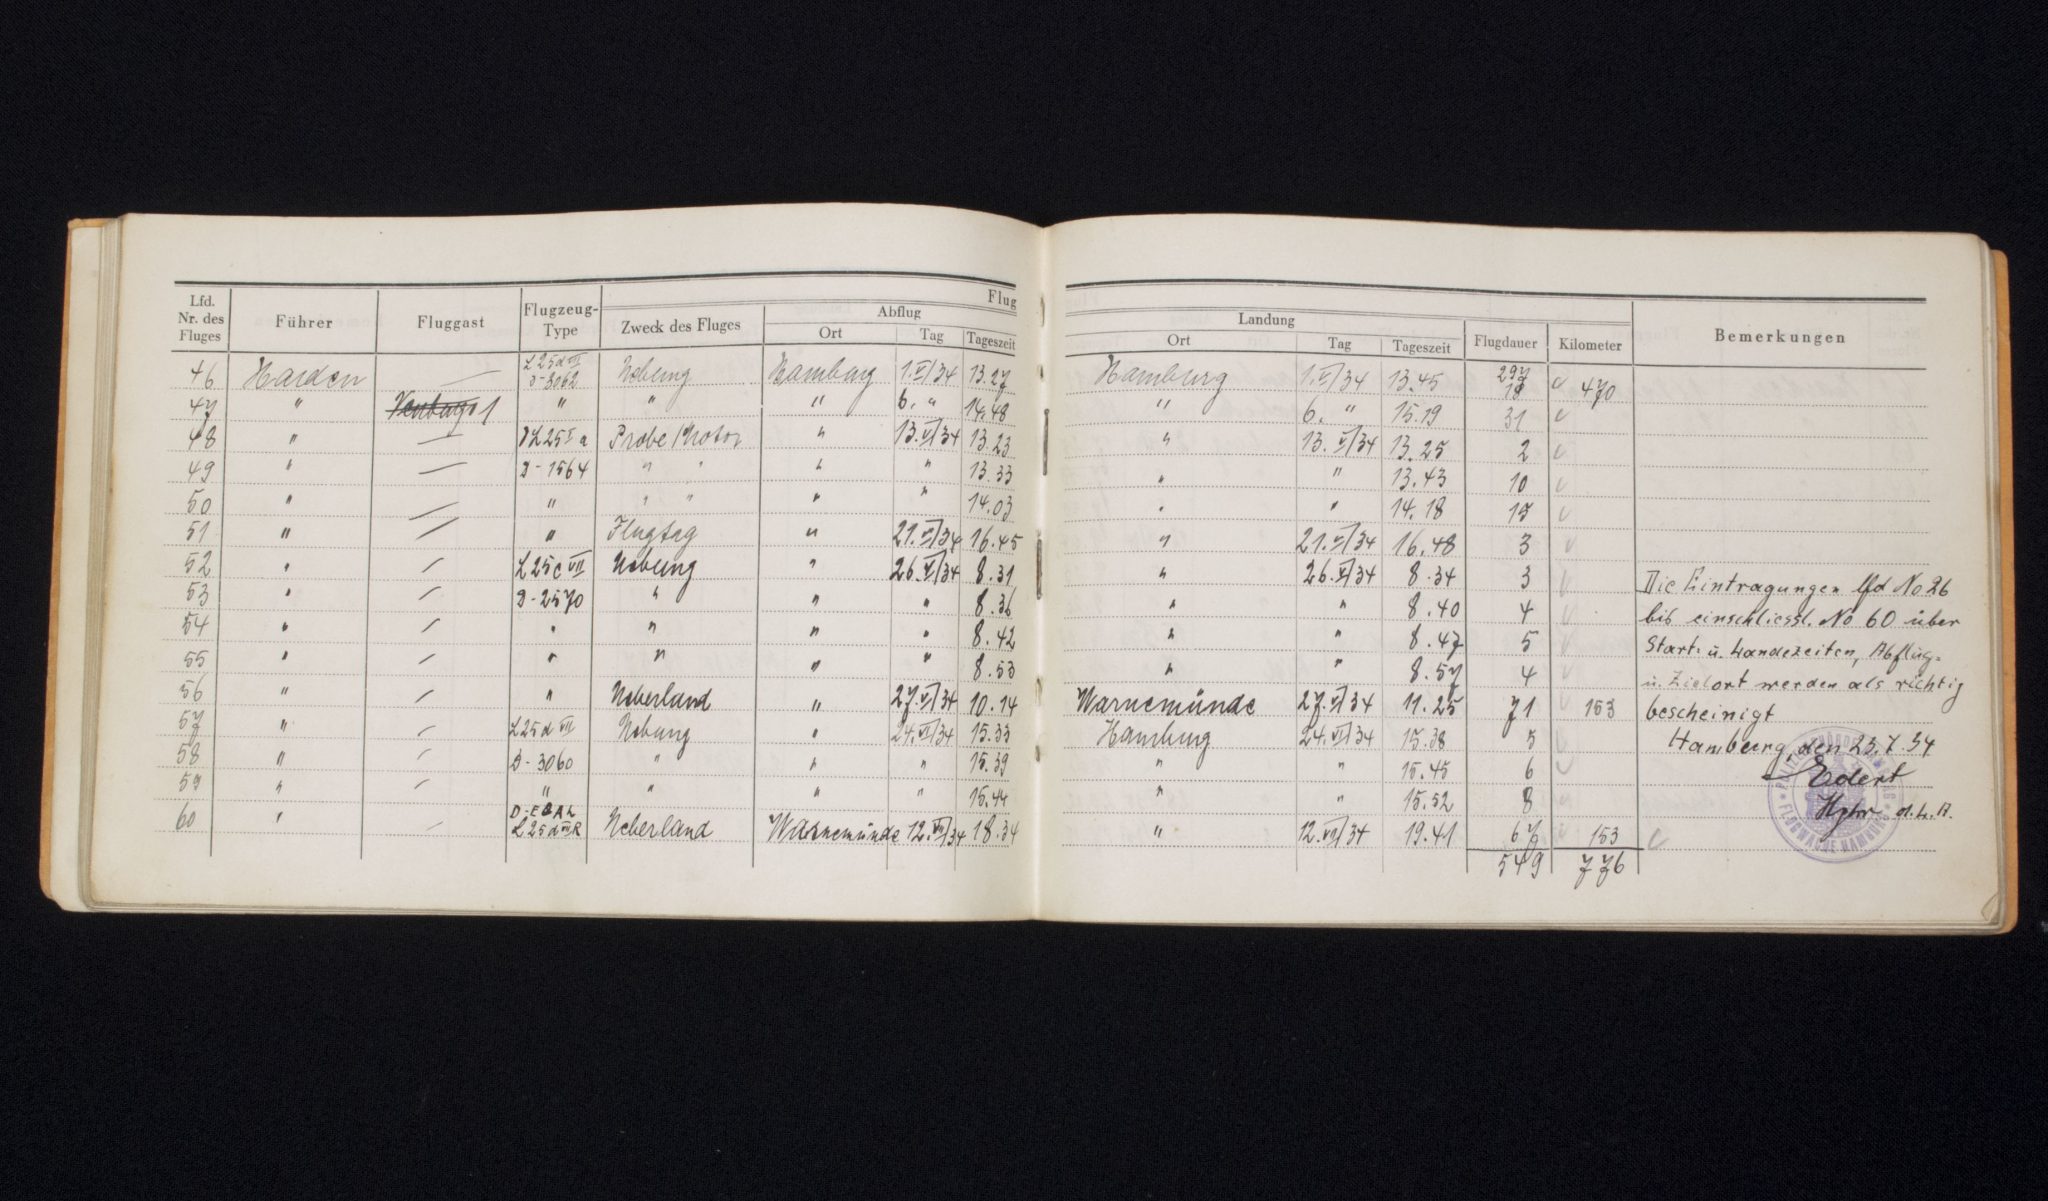 Flug
Lfd. Nr. des Fluges | Führer | Fluggast | Flugzeug-Type | Zweck des Fluges | Abflug | Ort | Tag | Tageszeit | Landung | Ort | Tag | Tageszeit | Flugdauer | Kilometer | Bemerkungen
297
46 Harden — L25d VII D-3062 Uebung Hamburg 1.V/34 13.27 Hamburg 1.V/34 13.45 18 470
47 " " " " 6. " 14.48 " 6. " 15.19 31
48 " — L25 I a Probe/Motor " 13.V/34 13.23 " 13.V/34 13.25 2
49 " — D-1564 " " " " 13.33 " " 13.43 10
50 " — " " " " " 14.03 " " 14.18 15
51 " — " Flugtag " 21.V/34 16.45 " 21.V/34 16.48 3
52 " — L25c VII Uebung " 26.V/34 8.31 " 26.V/34 8.34 3
53 " — D-2570 " " " 8.36 " " 8.40 4
54 " — " " " " 8.42 " " 8.47 5
55 " — " " " " 8.53 " " 8.57 4
56 " — " Ueberland " 27.V/34 10.14 Warnemünde 27.V/34 11.25 71 153
57 " — L25d VII Uebung " 24.VI/34 15.33 Hamburg 24.VI/34 15.38 5
58 " — D-3060 " " " 15.39 " " 15.45 6
59 " — " " " " 15.44 " " 15.52 8
60 " — L25d VII R Ueberland Warnemünde 12.VII/34 18.34 " 12.VII/34 19.41 67 153
549 776
Die Eintragungen lfd No 26
bis einschliessl. No 60 über
Start- u. Landezeiten, Abflug-
u. Zielort werden als richtig
bescheinigt
Hamburg, den 23.7.34
Edert
POLIZEIBEHÖRDE HAMBURG
FLUGWACHE HAMBURG